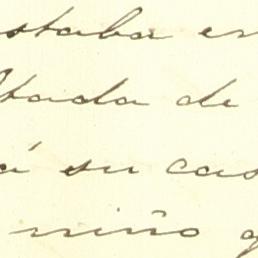 staba en
ltada de
á su cas
niño q